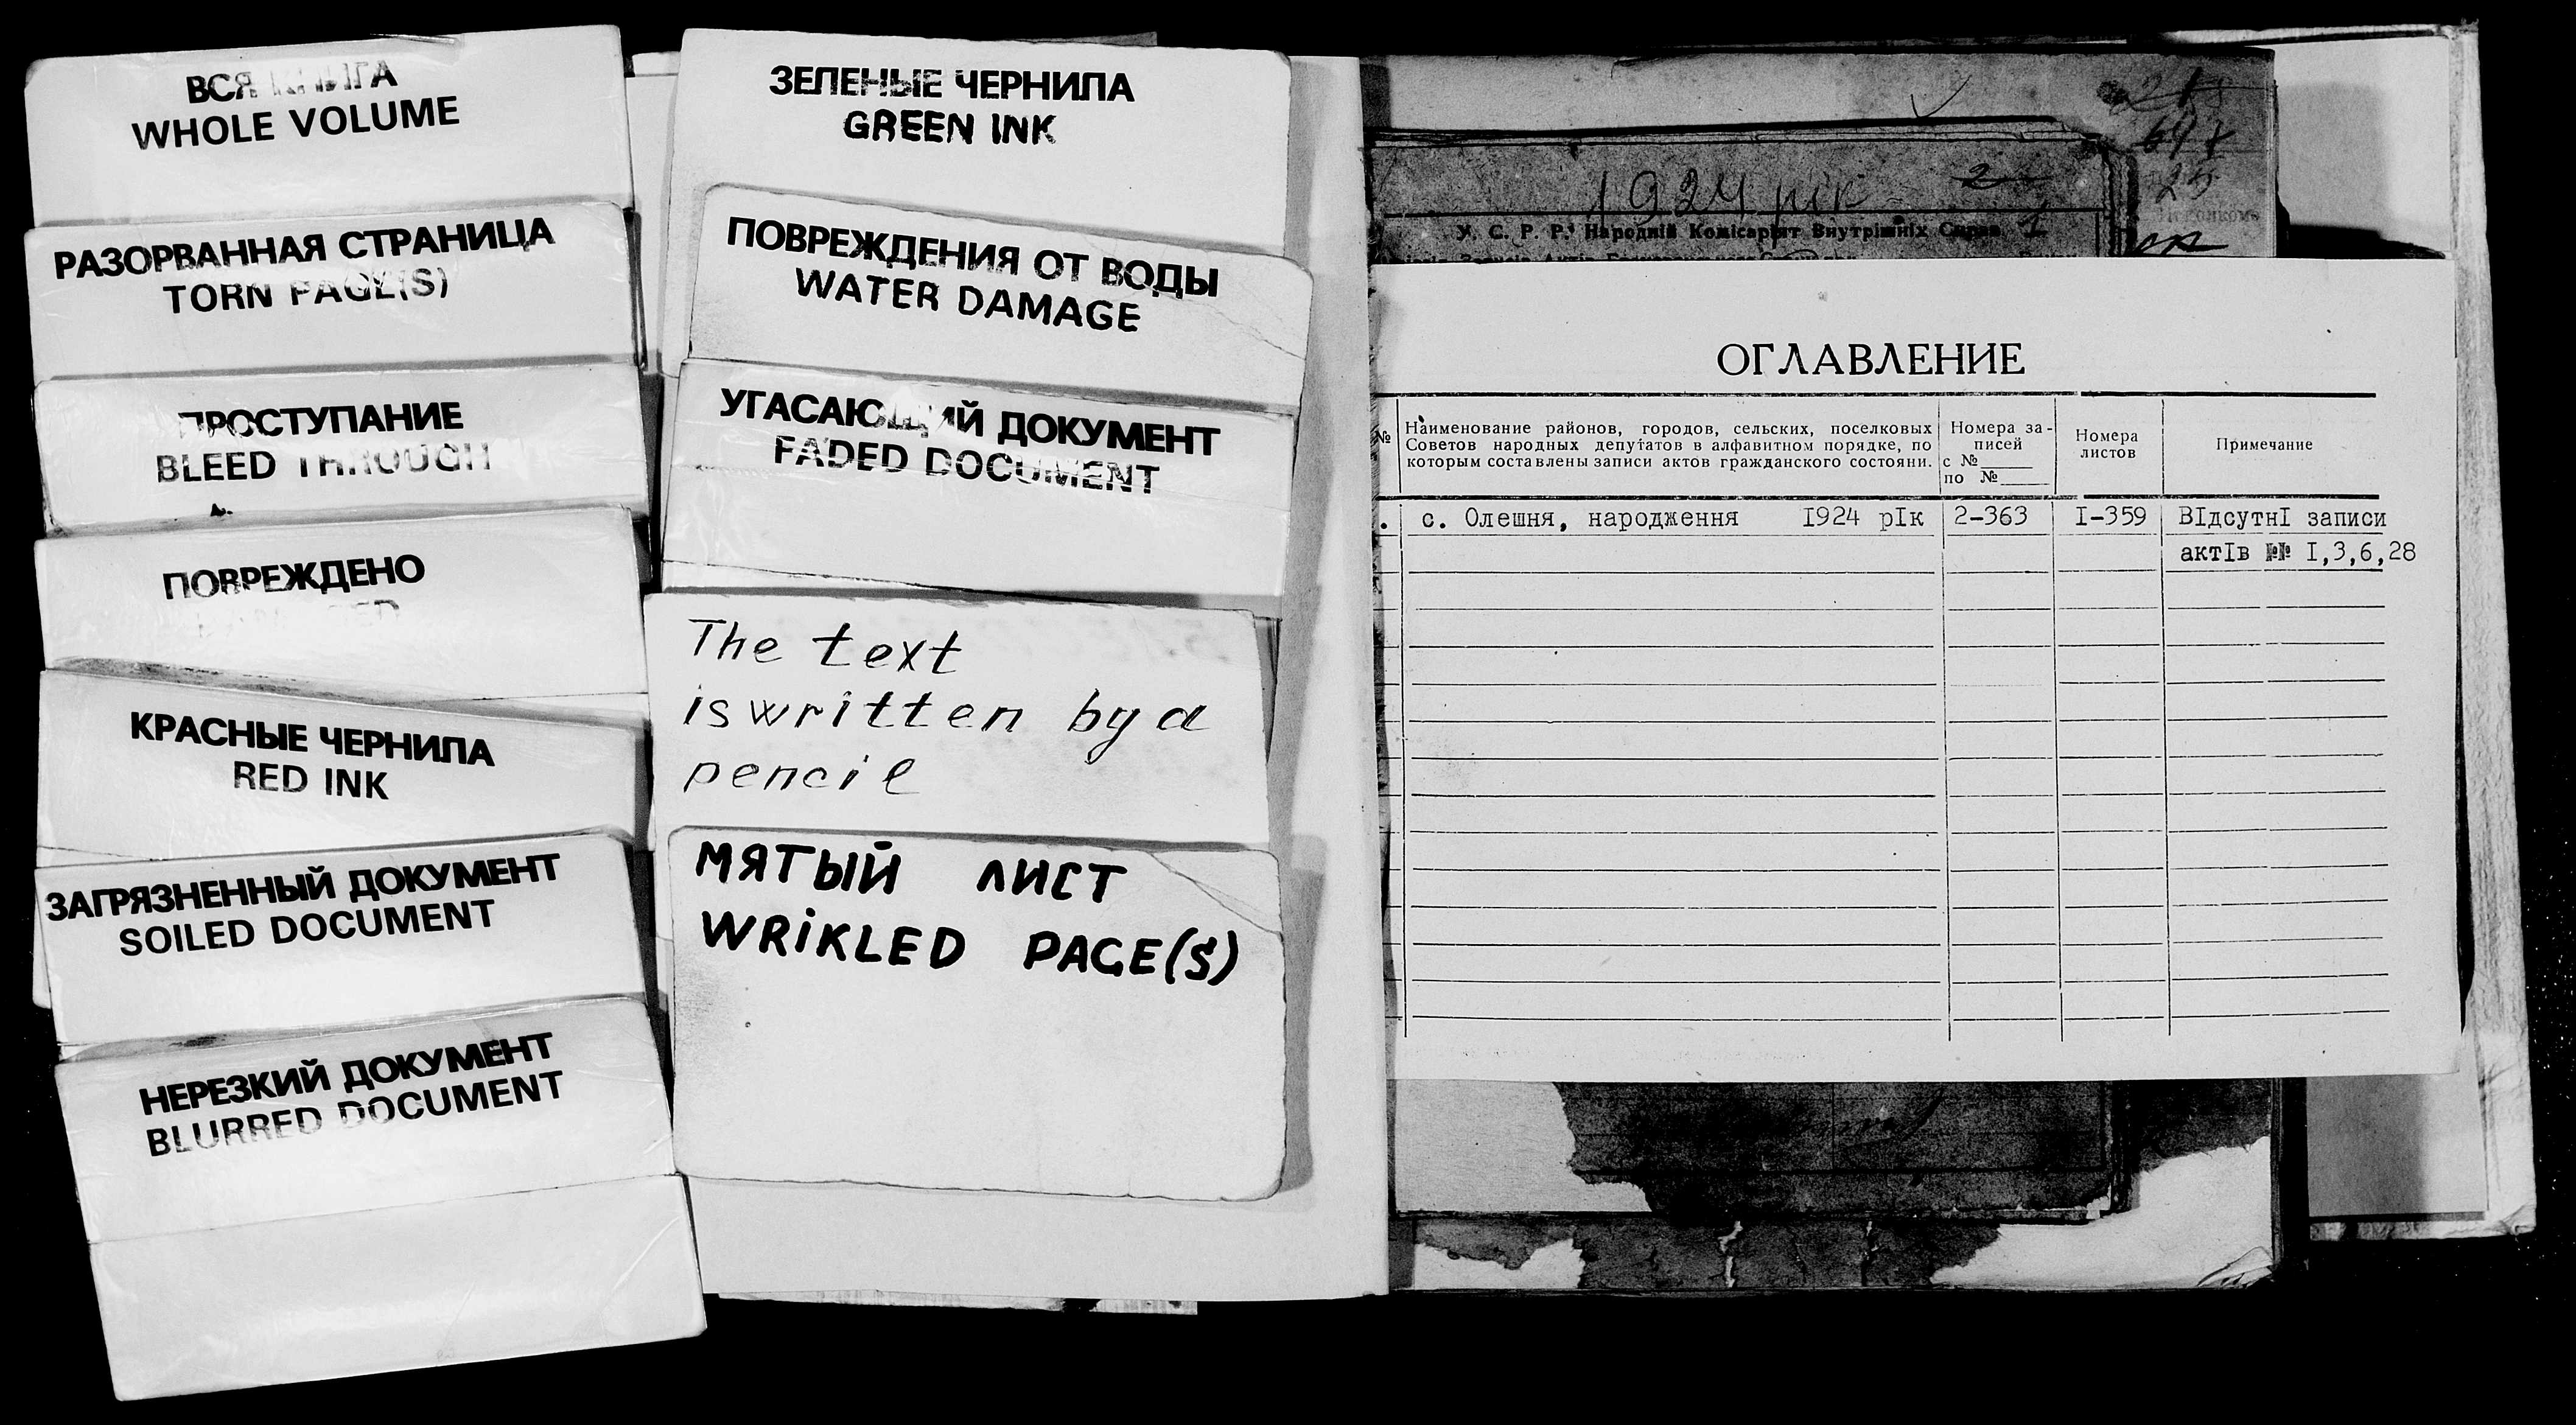 ВСЯ КНИГА
WHOLE VOLUME
РАЗОРВАННАЯ СТРАНИЦА
TORN PAGE(S)
ПРОСТУПАНИЕ
BLEED THROUGH
ПОВРЕЖДЕНО
КРАСНЫЕ ЧЕРНИЛА
RED INK
ЗАГРЯЗНЕННЫЙ ДОКУМЕНТ
SOILED DOCUMENT
НЕРЕЗКИЙ ДОКУМЕНТ
BLURRED DOCUMENT
ЗЕЛЕНЫЕ ЧЕРНИЛА
GREEN INK
ПОВРЕЖДЕНИЯ ОТ ВОДЫ
WATER DAMAGE
УГАСАЮЩИЙ ДОКУМЕНТ
FADED DOCUMENT
The text
is written by a
pencil
МЯТЫЙ ЛИСТ
WRIKLED PAGE(S)
25
1924 рік
У. С. Р. Р. Народній Комісаріят Внутрішніх Справ
ОГЛАВЛЕНИЕ
№
Наименование районов, городов, сельских, поселковых
Советов народных депутатов в алфавитном порядке, по
которым составлены записи актов гражданского состояни.
Номера за-
писей
с №
по №
Номера
листов
Примечание
. с. Олешня, народження I924 рIк 2-363 I-359 ВIдсутнI записи
актIв №№ I,3,6,28